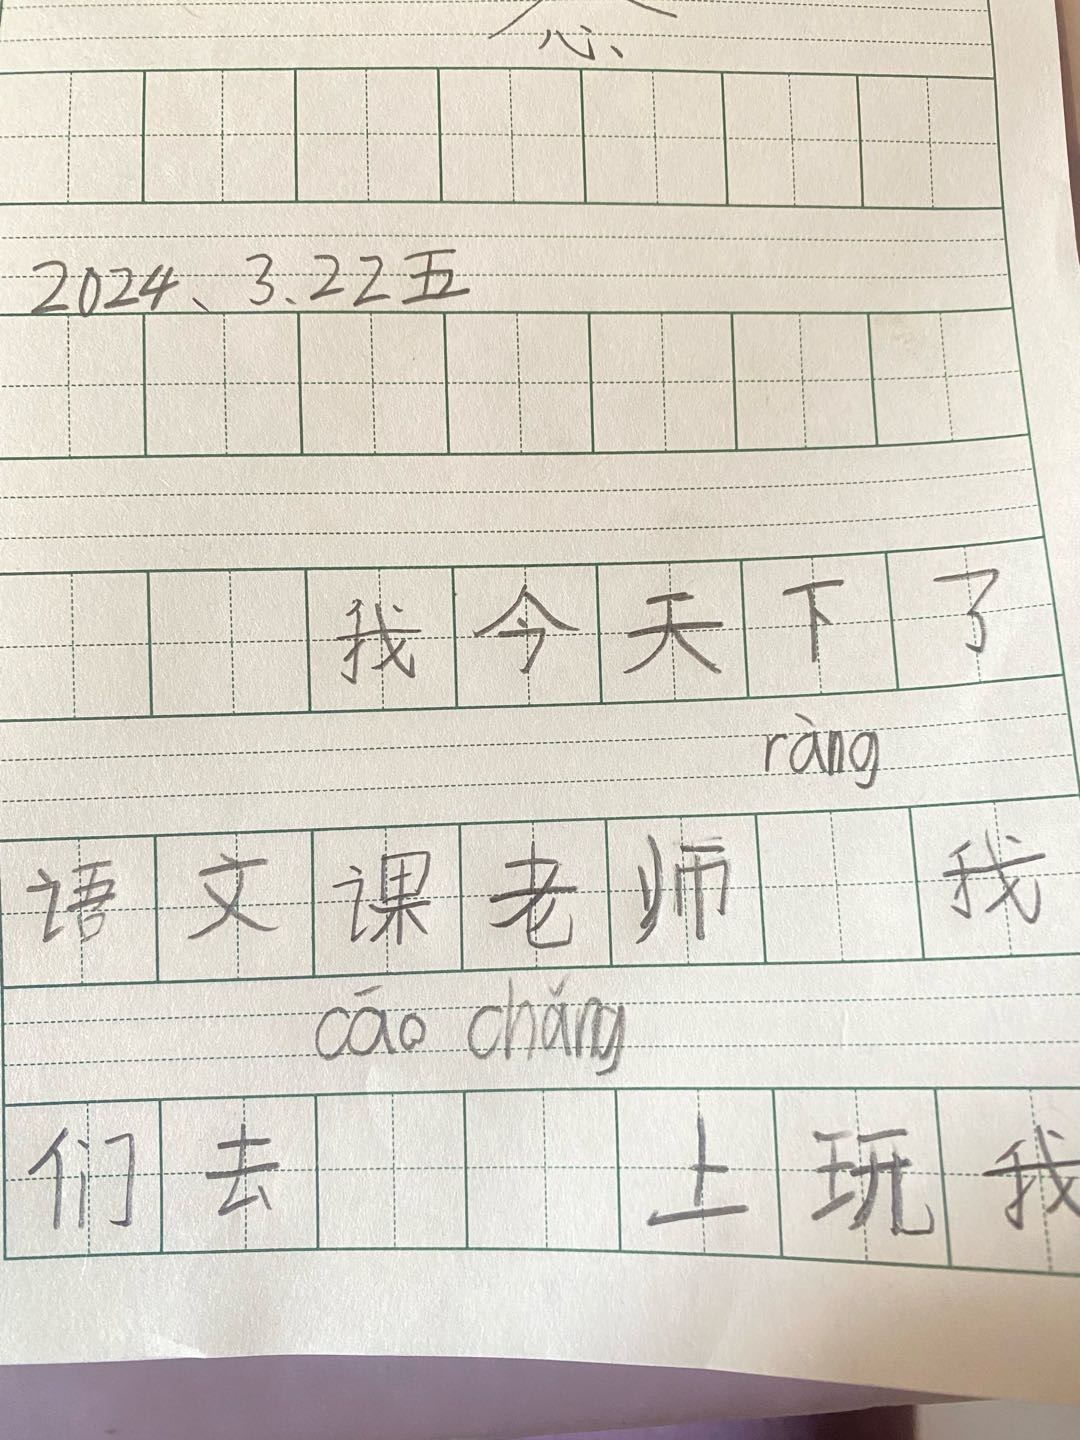 2024、3.22五
我今天下了
ràng
语文课老师 我
cāo chǎng
们去 上玩我